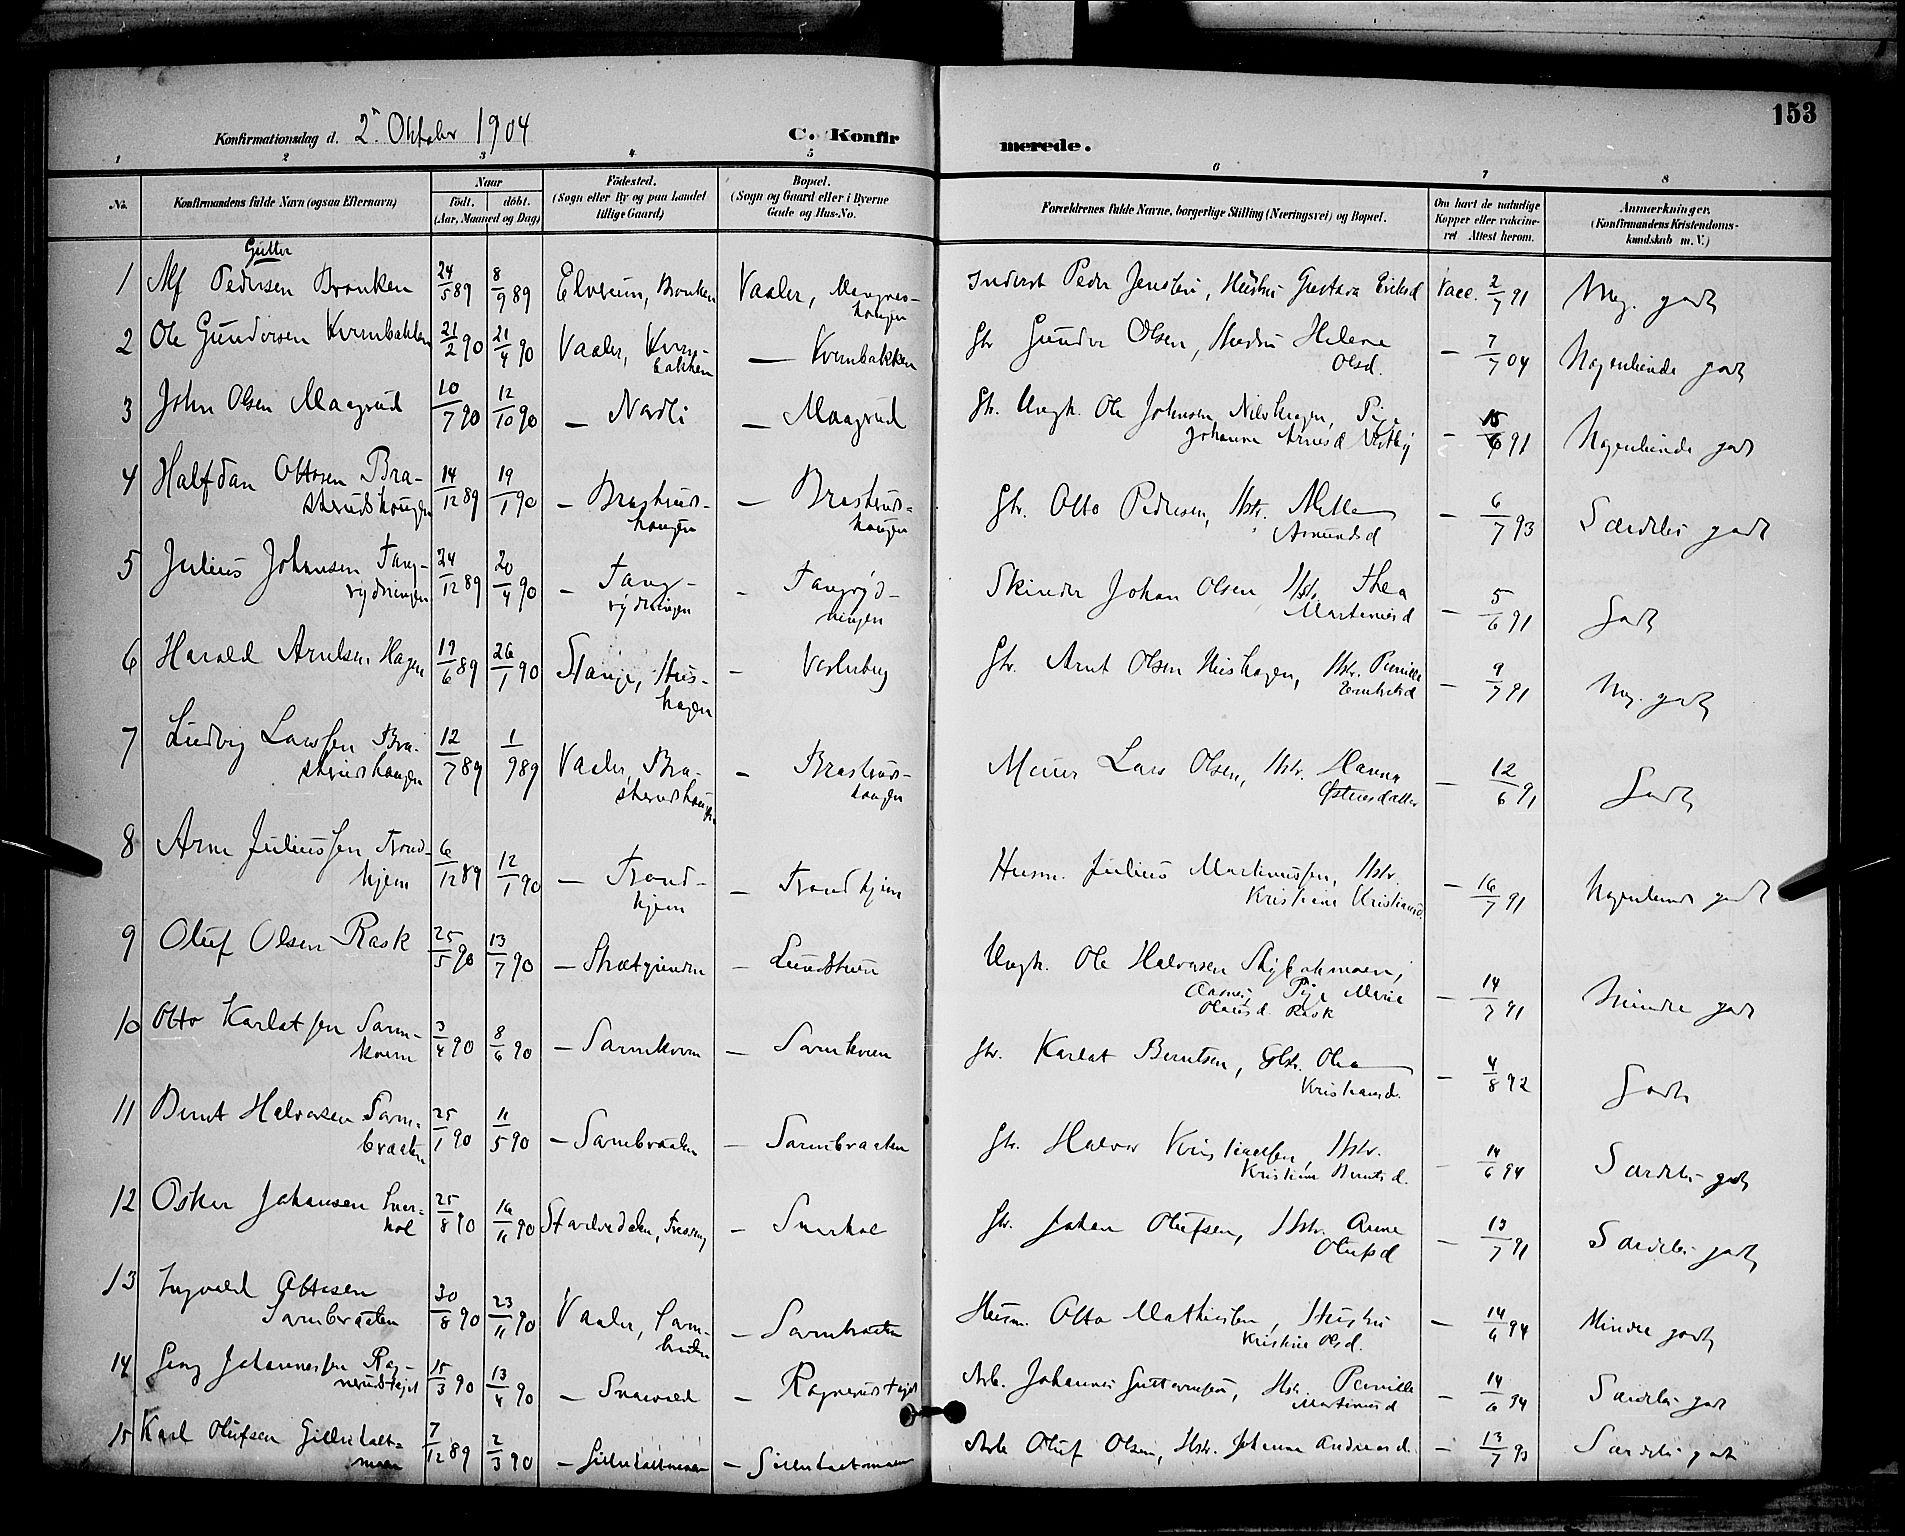 153
Konfirmationsdag d. 2. Oktober 1904
C. Konfirmerede.
1 2 3 4 5 6 7 8
No.
Konfirmandens fulde Navn (ogsaa Efternavn)
Naar
födt. döbt.
(Aar, Maaned og Dag)
Födested.
(Sogn eller By og paa Landet
tillige Gaard)
Bopæl.
(Sogn og Gaard eller i Byerne
Gade og Hus-No.
Forældrenes fulde Navne, borgerlige Stilling (Næringsvei) og Bopæl.
Om havt de naturlige
Kopper eller vakcine-
ret Attest herom.
Anmærkninger.
(Konfirmandens Kristendoms-
kundskab m. V.)
Gutter
1 Alf Pedersen Bronken 24/5 89 8/9 89 Elverum, Bronken Vaaler, haugen Peder Jensen, Hustru Gustava Eriksd Vacc. 2/7 91 Meg. godt
2 Ole Gundersen Kvernbakken 21/2 90 21/4 90 Vaaler, Kvern-
bakken — Kvernbakken Gbr Gunder Olsen, Hustru Helene
Olsd. — 7/7 04 Nogenlunde godt
3 John Olsen Maagrud 10/7 90 12/10 90 — Nordli — Maagrud Ungk. Ole Johnsen, Pige
Johanne Arnesd — 15/6 91 Nogenlunde godt
4 Halfdan Ottosen Bra-
skerudshaugen 14/12 89 19/1 90 — Braskerud-
haugen — Braskerud-
haugen Gbr. Otto Pedersen, Hstr. Mette
Asmundsd — 6/7 93 Særdeles godt
5 Julius Johansen Tang-
rydningen 24/12 89 20/4 90 — Tang-
rydningen - Tangryd-
ningen Skinder Johan Olsen, Hstr. Thea
Martinusd — 5/6 91 Godt
6 Harald Arntsen Hagen 19/6 89 26/1 90 Stange, Hus-
hagen - Vesleberg Gbr. Arnt Olsen Hushagen, Hstr. Pernille — 9/7 91 Meg. godt
7 Ludvig Larssen Bra-
skerudhaugen 12/7 89 1/9 89 Vaaler, Bra-
skerudhaugen - Braskerud-
haugen Murer Lars Olsen, Hstr. Hanna
Østensdatter — 12/6 91 Godt
8 Arne Juliussen Trond-
hjem 6/12 89 12/1 90 — Trond-
hjem — Trondhjem Husm. Julius Martinussen, Hstr.
Kristine Kristiansd. — 16/7 91 Nogenlunde godt
9 Oluf Olsen Rask 25/5 90 13/7 90 — - Ungk. Ole Halvorsen
Pige Marie
Olausd. Rask — 14/7 91 Mindre godt
10 Otto Karlatsen Sørm-
koien 3/4 90 8/6 90 — — Gbr. Karlat Berntsen, Hstr. Olea
Kristiansd. — 4/8 92 Godt
11 Bernt Halvorsen Sørm-
braaten 25/1 90 11/5 90 — Sørmbraaten — Sørmbraaten Gbr. Halvor Kristiansen, Hstr.
Kristine Berntsd. - 14/6 94 Særdeles godt
12 Oskar Johansen Sner-
kol 25/8 90 16/11 90 — Snerkol Gbr. Johan Olufsen, Hstr. Anne
Olufsd — 13/7 91 Særdeles godt
13 Ingvald Ottesen
Sørmbraaten 30/8 90 23/11 90 Vaaler, Sørm-
braaten — Sørmbraaten Husm. Otto Mathiesen, Hustru
Kristine Olsd. — 14/6 94 Mindre godt
14 Georg Johannessen Rag-
nerudstajet 15/3 90 13/4 90 — Snaavold — Ragnerudstajet Arb. Johannes Guttormsen, Hstr. Pernille
Martinusd — 14/6 94 Særdeles godt
15 Karl Olufsen Gilderhalt-
moen 7/12 89 2/3 90 — Gilderhaltmoen — Gilderhaltmoen Arb Oluf Olsen, Hstr. Johanne Andreasd. — 13/7 93 Særdeles godt